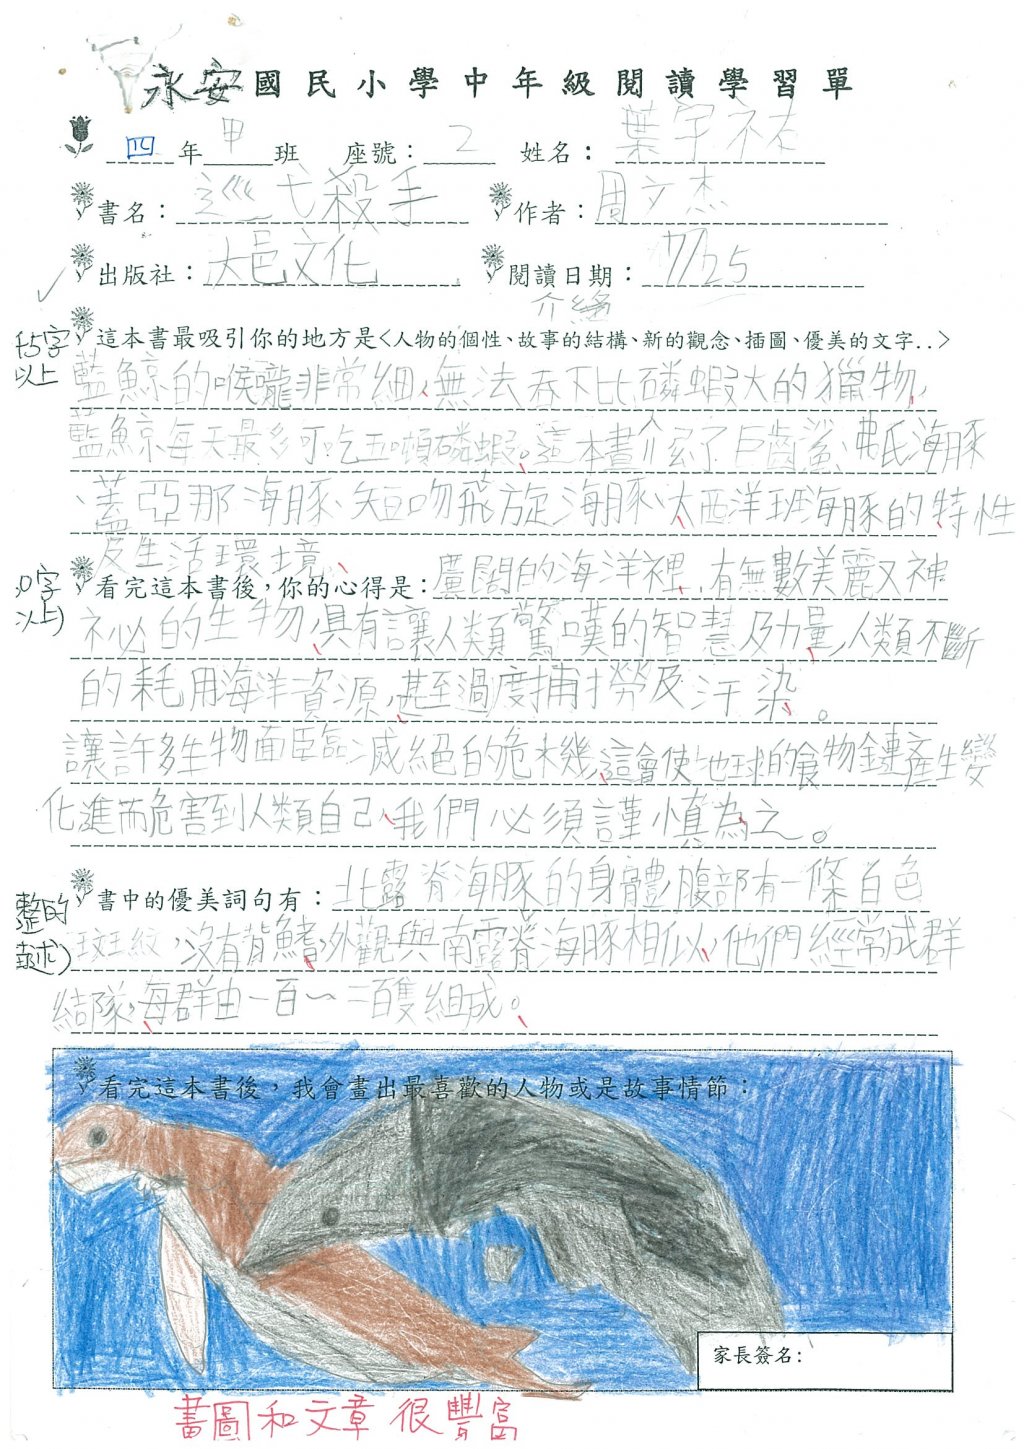 永安國民小學中年級閱讀學習單
四年甲班 座號：2 姓名：葉宇祐
書名：巡弋殺手 作者：周文杰
出版社：大邑文化 閱讀日期：7/25
介紹
75字以上 這本書最吸引你的地方是<人物的個性、故事的結構、新的觀念、插圖、優美的文字..>
藍鯨的喉嚨非常細，無法吞下比磷蝦大的獵物，
藍鯨每天最多可吃五噸磷蝦。這本書介紹了巨齒鯊、弗氏海豚
、蓋亞那海豚、短吻飛旋海豚、大西洋斑海豚的特性
及生活環境。
看完這本書後，你的心得是：廣闊的海洋裡，有無數美麗又神
祕的生物，具有讓人類驚嘆的智慧及力量，人類不斷
的耗用海洋資源，甚至過度捕撈及汙染。
讓許多生物面臨滅絕的危機，這會使地球的食物鏈產生變
化進而危害到人類自己，我們必須謹慎為之。
書中的優美詞句有：北露脊海豚的身體腹部有一條白色
斑紋，沒有背鰭，外觀與南露脊海豚相似，他們經常成群
結隊，每群由一百～二百隻組成。
看完這本書後，我會畫出最喜歡的人物或是故事情節：
家長簽名：
畫圖和文章很豐富